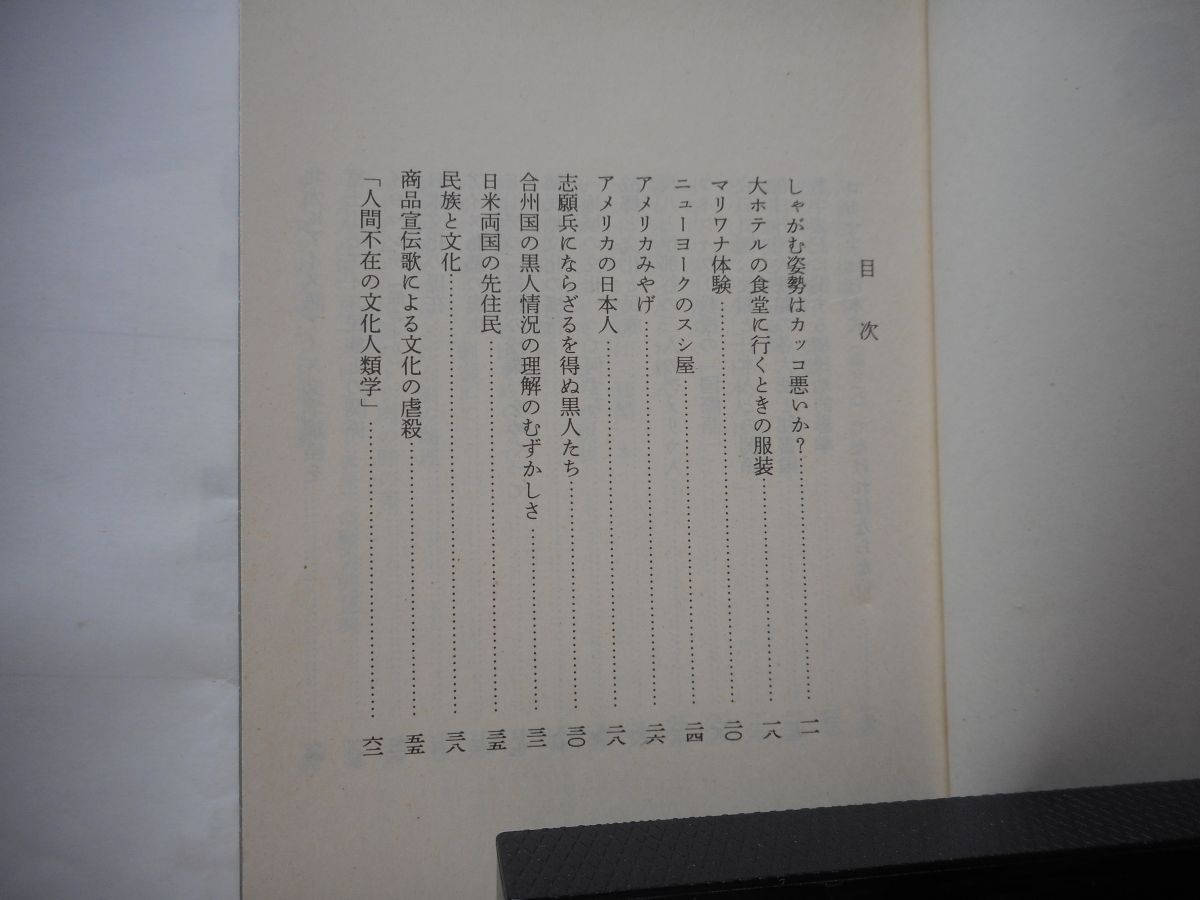 目次
しゃがむ姿勢はカッコ悪いか?……一一
大ホテルの食堂に行くときの服装……一八
マリワナ体験……二〇
ニューヨークのスシ屋……二四
アメリカみやげ……二六
アメリカの日本人……二八
志願兵にならざるを得ぬ黒人たち……三〇
合州国の黒人情況の理解のむずかしさ……三二
日米両国の先住民……三五
民族と文化……三八
商品宣伝歌による文化の虐殺……五五
「人間不在の文化人類学」……六二